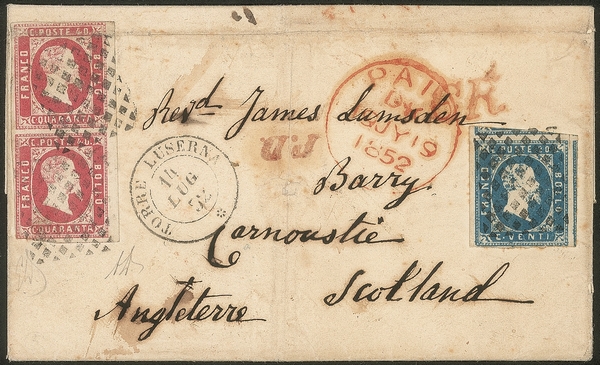 C. POSTE 40.
FRANCO
BOLLO
C. QUARANTA
C. POSTE 40.
FRANCO
BOLLO
C. QUARANTA
PAID
JY 19
1852
P.D.
Revd James Lumsden
TORRE LUSERNA
14
LUG
52
Barry.
Carnoustie
Angleterre
Scotland
C. POSTE 20.
FRANCO
BOLLO
C. VENTI